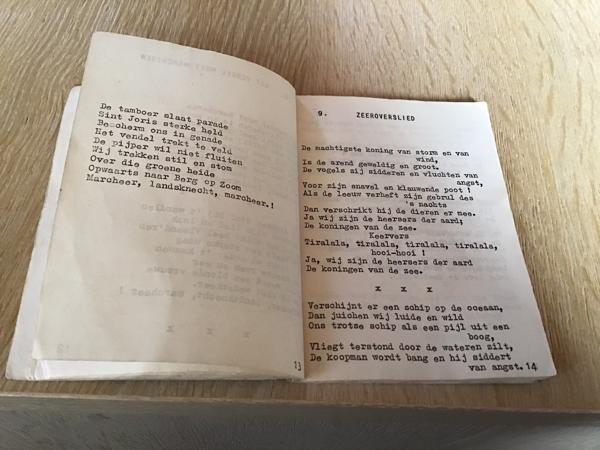 De tamboer slaat parade
Sint Joris sterke held
Bescherm ons in genade
Het vendel trekt te veld
De pijper wil niet fluiten
Wij trekken stil en stom
Over die groene heide
Opwaarts naar Berg op Zoom
Marcheer, landsknecht, marcheer.!
13
9. ZEEROVERSLIED
De machtigste koning van storm en van
wind,
Is de arend geweldig en groot.
De vogels zij sidderen en vluchten van
angst,
Voor zijn snavel en klauwende poot !
Als de leeuw verheft zijn gebrul des
's nachts
Dan verschrikt hij de dieren er mee.
Ja wij zijn de heersers der aard;
De koningen van de zee.
Keervers
Tiralala, tiralala, tiralala, tiralala,
hooi-hooi !
Ja, wij zijn de heersers der aard
De koningen van de zee.
x x x
Verschijnt er een schip op de oceaan,
Dan juichen wij luide en wild
Ons trotse schip als een pijl uit een
boog,
Vliegt terstond door de wateren zilt,
De koopman wordt bang en hij siddert
van angst.14